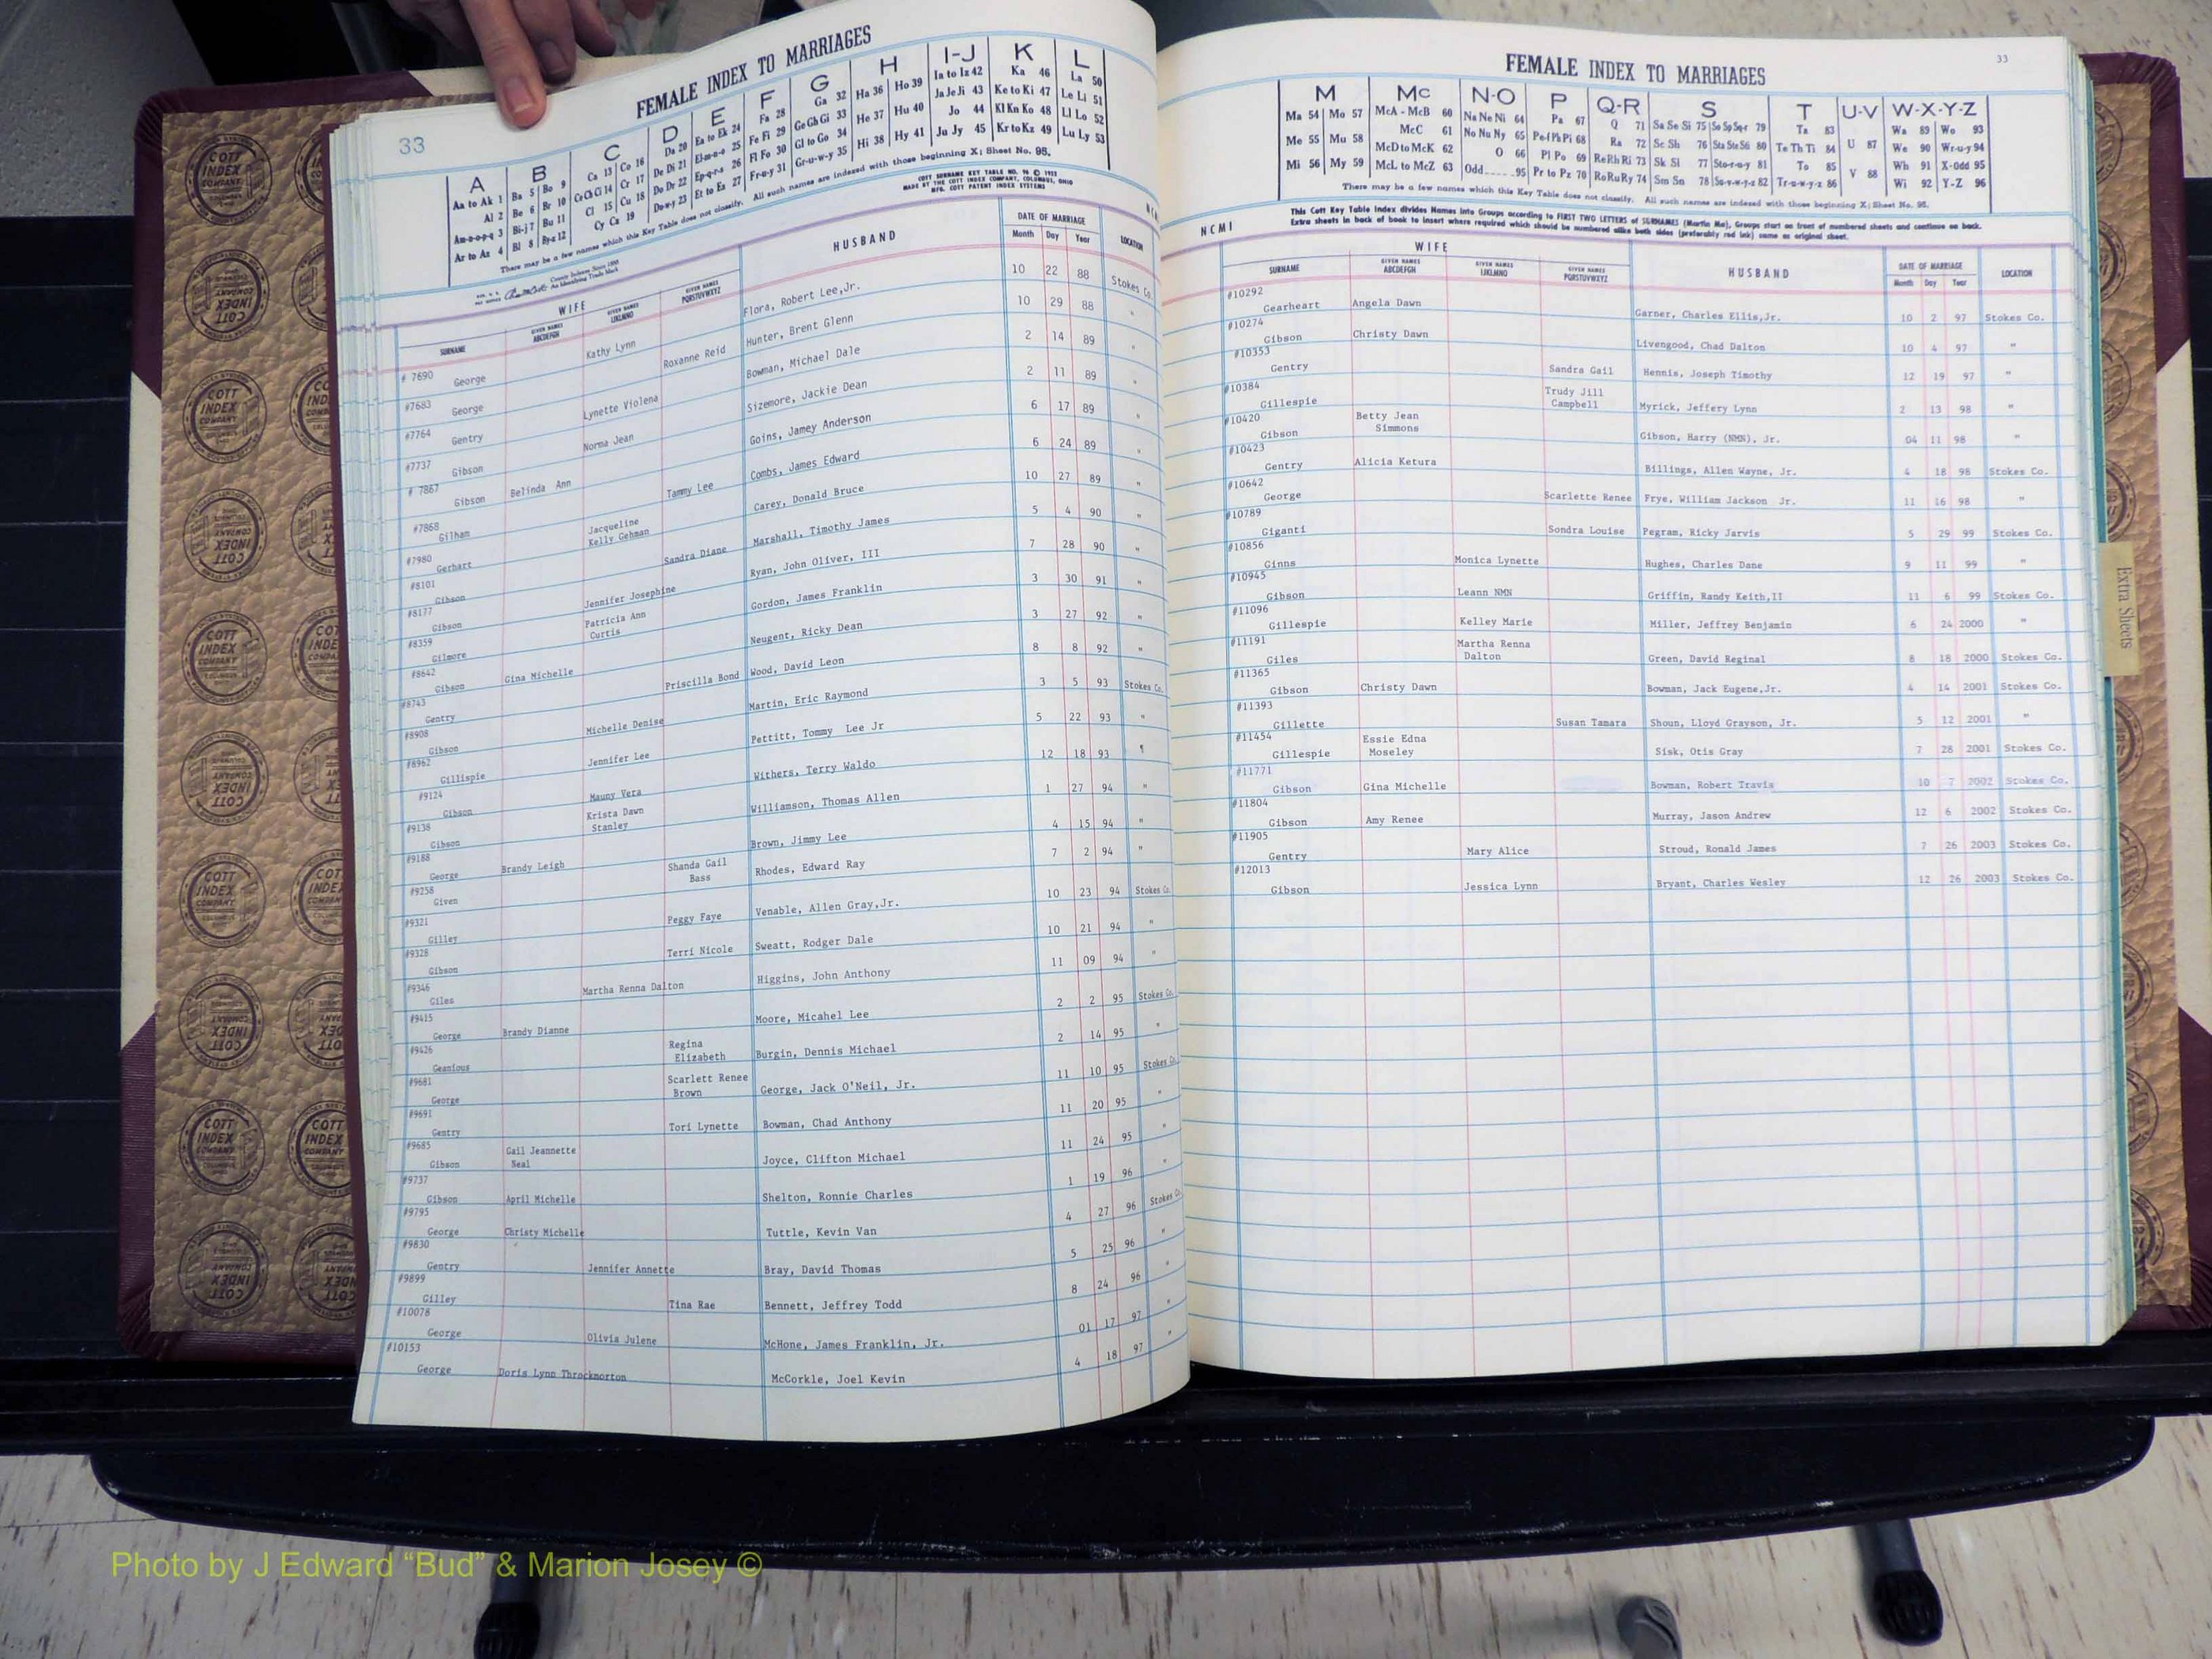 33
FEMALE INDEX TO MARRIAGES
A B C D E F G H I-J K L
Aa to Ak 1 Ba 5 Bo 9 Ca 13 Co 16 Da 20 Ea to Ek 24 Fa 28 Ga 32 Ha 36 Ho 39 Ia to Iz 42 Ka 46 La 50
Al 2 Be 6 Br 10 Ce Ch Ci 14 Cr 17 De Di 21 El-m-n-o 25 Fe Fi 29 Ge Gh Gi 33 He 37 Hu 40 Ja Je Ji 43 Ke to Ki 47 Le Li 51
Am-n-o-p-q 3 Bi-j 7 Bu 11 Cl 15 Cu 18 Do Dr 22 Ep-q-r-s 26 Fl Fo 30 Gl to Go 34 Hi 38 Hy 41 Jo 44 Kl Kn Ko 48 Ll Lo 52
Ar to Az 4 Bl 8 By-z 12 Cy Cz 19 Du-w-y 23 Et to Ez 27 Fr-u-y 31 Gr-u-w-y 35 Ju Jy 45 Kr to Kz 49 Lu Ly 53
There may be a few names which this Key Table does not classify. All such names are indexed with those beginning X; Sheet No. 95.
COTT SURNAME KEY TABLE NO. 96 © 1952
MADE BY THE COTT INDEX COMPANY, COLUMBUS, OHIO
MFG. COTT PATENT INDEX SYSTEMS
WIFE HUSBAND DATE OF MARRIAGE LOCATION
SURNAME GIVEN NAMES ABCDEFGH GIVEN NAMES IJKLMNO GIVEN NAMES PQRSTUVWXYZ Month Day Year
# 7690 George Kathy Lynn Flora, Robert Lee,Jr. 10 22 88 Stokes Co.
#7683 George Roxanne Reid Hunter, Brent Glenn 10 29 88 "
#7764 Gentry Lynette Violena Bowman, Michael Dale 2 14 89 "
#7737 Gibson Norma Jean Sizemore, Jackie Dean 2 11 89 "
# 7867 Gibson Belinda Ann Goins, Jamey Anderson 6 17 89 "
#7868 Gilham Tammy Lee Combs, James Edward 6 24 89 "
#7980 Gerhart Jacqueline Kelly Gehman Carey, Donald Bruce 10 27 89 "
#8101 Gibson Sandra Diane Marshall, Timothy James 5 4 90 "
#8177 Gibson Jennifer Josephine Ryan, John Oliver, III 7 28 90 "
#8359 Gilmore Patricia Ann Curtis Gordon, James Franklin 3 30 91 "
#8642 Gibson Gina Michelle Neugent, Ricky Dean 3 27 92 "
#8743 Gentry Priscilla Bond Wood, David Leon 8 8 92 "
#8908 Gibson Michelle Denise Martin, Eric Raymond 3 5 93 Stokes Co.
#8962 Gillispie Jennifer Lee Pettitt, Tommy Lee Jr 5 22 93 "
#9124 Gibson Mauny Vera Withers, Terry Waldo 12 18 93 "
#9138 Gibson Krista Dawn Stanley Williamson, Thomas Allen 1 27 94 "
#9188 George Brandy Leigh Brown, Jimmy Lee 4 15 94 "
#9258 Given Shanda Gail Bass Rhodes, Edward Ray 7 2 94 "
#9321 Gilley Peggy Faye Venable, Allen Gray,Jr. 10 23 94 Stokes Co.
#9328 Gibson Terri Nicole Sweatt, Rodger Dale 10 21 94 "
#9346 Giles Martha Renna Dalton Higgins, John Anthony 11 09 94 "
#9415 George Brandy Dianne Moore, Micahel Lee 2 2 95 Stokes Co.
#9426 Geanious Regina Elizabeth Burgin, Dennis Michael 2 14 95 "
#9681 George Scarlett Renee Brown George, Jack O'Neil, Jr. 11 10 95 Stokes Co.
#9691 Gentry Tori Lynette Bowman, Chad Anthony 11 20 95 "
#9685 Gibson Gail Jeannette Neal Joyce, Clifton Michael 11 24 95 "
#9737 Gibson April Michelle Shelton, Ronnie Charles 1 19 96 "
#9795 George Christy Michelle Tuttle, Kevin Van 4 27 96 Stokes Co
#9830 Gentry Jennifer Annette Bray, David Thomas 5 25 96 "
#9899 Gilley Tina Rae Bennett, Jeffrey Todd 8 24 96 "
#10078 George Olivia Julene McHone, James Franklin, Jr. 01 17 97 "
#10153 George Doris Lynn Throckmorton McCorkle, Joel Kevin 4 18 97 "
33
FEMALE INDEX TO MARRIAGES
M Mc N-O P Q-R S T U-V W-X-Y-Z
Ma 54 Mo 57 McA - McB 60 Na Ne Ni 64 Pa 67 Q 71 Sa Se Si 75 So Sp Sq-r 79 Ta 83 U 87 Wa 89 Wo 93
Me 55 Mu 58 McC 61 No Nu Ny 65 Pe-f Ph Pi 68 Ra 72 Sc Sh 76 Sta Ste St 80 Te Th Ti 84 V 88 We 90 Wr-u-y 94
Mi 56 My 59 McD to McK 62 O 66 Pl Po 69 Re Rh Ri 73 Sk Sl 77 Sto-r-u-y 81 To 85 Wh 91 X-Odd 95
McL to McZ 63 Odd 95 Pr to Pz 70 Ro Ru Ry 74 Sm Sn 78 Su-v-w-y-z 82 Tr-u-w-y-z 86 Wi 92 Y-Z 96
There may be a few names which this Key Table does not classify. All such names are indexed with those beginning X; Sheet No. 95.
NCMI
This Cott Key Table Index divides Names into Groups according to FIRST TWO LETTERS of SURNAMES (Martin Ma), Groups start on front of numbered sheets and continue on back.
Extra sheets in back of book to insert where required which should be numbered alike both sides (preferably red ink) same as original sheet.
WIFE HUSBAND DATE OF MARRIAGE LOCATION
SURNAME GIVEN NAMES ABCDEFGH GIVEN NAMES IJKLMNO GIVEN NAMES PQRSTUVWXYZ Month Day Year
#10292 Gearheart Angela Dawn Garner, Charles Ellis,Jr. 10 2 97 Stokes Co.
#10274 Gibson Christy Dawn Livengood, Chad Dalton 10 4 97 "
#10353 Gentry Sandra Gail Hennis, Joseph Timothy 12 19 97 "
#10384 Gillespie Trudy Jill Campbell Myrick, Jeffery Lynn 2 13 98 "
#10420 Gibson Betty Jean Simmons Gibson, Harry (NMN), Jr. 04 11 98 "
#10423 Gentry Alicia Ketura Billings, Allen Wayne, Jr. 4 18 98 Stokes Co.
#10642 George Scarlette Renee Frye, William Jackson Jr. 11 16 98 "
#10789 Giganti Sondra Louise Pegram, Ricky Jarvis 5 29 99 Stokes Co.
#10856 Ginns Monica Lynette Hughes, Charles Dane 9 11 99 "
#10945 Gibson Leann NMN Griffin, Randy Keith,II 11 6 99 Stokes Co.
#11096 Gillespie Kelley Marie Miller, Jeffrey Benjamin 6 24 2000 "
#11191 Giles Martha Renna Dalton Green, David Reginal 8 18 2000 Stokes Co.
#11365 Gibson Christy Dawn Bowman, Jack Eugene,Jr. 4 14 2001 Stokes Co.
#11393 Gillette Susan Tamara Shoun, Lloyd Grayson, Jr. 5 12 2001 "
#11454 Gillespie Essie Edna Moseley Sisk, Otis Gray 7 28 2001 Stokes Co.
#11771 Gibson Gina Michelle Bowman, Robert Travis 10 7 2002 Stokes Co.
#11804 Gibson Amy Renee Murray, Jason Andrew 12 6 2002 Stokes Co.
#11905 Gentry Mary Alice Stroud, Ronald James 7 26 2003 Stokes Co.
#12013 Gibson Jessica Lynn Bryant, Charles Wesley 12 26 2003 Stokes Co.
Extra Sheets
COTT INDEX COMPANY
Photo by J Edward “Bud” & Marion Josey ©